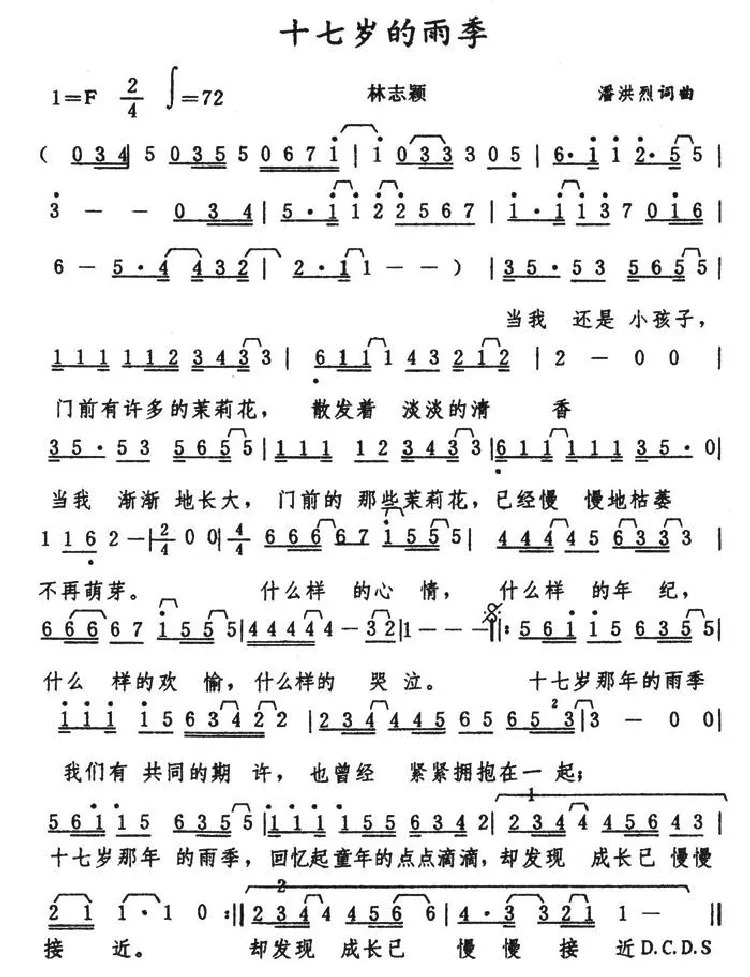 十七岁的雨季
1=F 2/4 ∫=72 林志颖 潘洪烈词曲
( 0 3 4 5 0 3 5 5 0 6 7 1 | 1 0 3 3 3 0 5 | 6 · 1 1 2 · 5 5 |
3 - - 0 3 4 | 5 · 1 1 2 2 5 6 7 | 1 · 1 1 3 7 0 1 6 |
6 - 5 · 4 4 3 2 | 2 · 1 1 - - ) | 3 5 · 5 3 5 6 5 5 |
当我 还是 小孩子，
1 1 1 1 1 1 2 3 4 3 3 | 6 1 1 1 4 3 2 1 2 | 2 - 0 0 |
门前有许多的茉莉花， 散发着 淡淡的清 香
3 5 · 5 3 5 6 5 5 | 1 1 1 1 2 3 4 3 3 | 6 1 1 1 1 1 3 5 · 0 |
当我 渐渐 地长大， 门前的 那些茉莉花，已经慢 慢地枯萎
1 1 6 2 - | 2/4 0 0 | 4/4 6 6 6 6 6 7 1 5 5 5 | 4 4 4 4 5 6 3 3 3 |
不再萌芽。 什么样 的心 情， 什么样 的年 纪，
6 6 6 6 6 7 1 5 5 5 | 4 4 4 4 4 4 - 3 2 | 1 - - - ‖: 5 6 1 1 5 6 3 5 5 |
什么 样的欢 愉，什么样的 哭泣。 十七岁那年的雨季
1 1 1 1 5 6 3 4 2 2 | 2 3 4 4 4 5 6 5 6 5 2 3 | 3 - 0 0 |
我们有 共同的期 许， 也曾经 紧紧拥抱在一起；
1
5 6 1 1 5 6 3 5 5 | 1 1 1 1 5 5 6 3 4 2 | 2 3 4 4 4 5 6 4 3 |
十七岁那年 的雨季，回忆起童年的点点滴滴，却发现 成长已 慢慢
2
2 1 1 · 1 0 :‖ 2 3 4 4 4 5 6 6 | 4 · 3 3 2 1 1 - ‖
接 近。 却发现 成长已 慢慢 接 近D.C.D.S